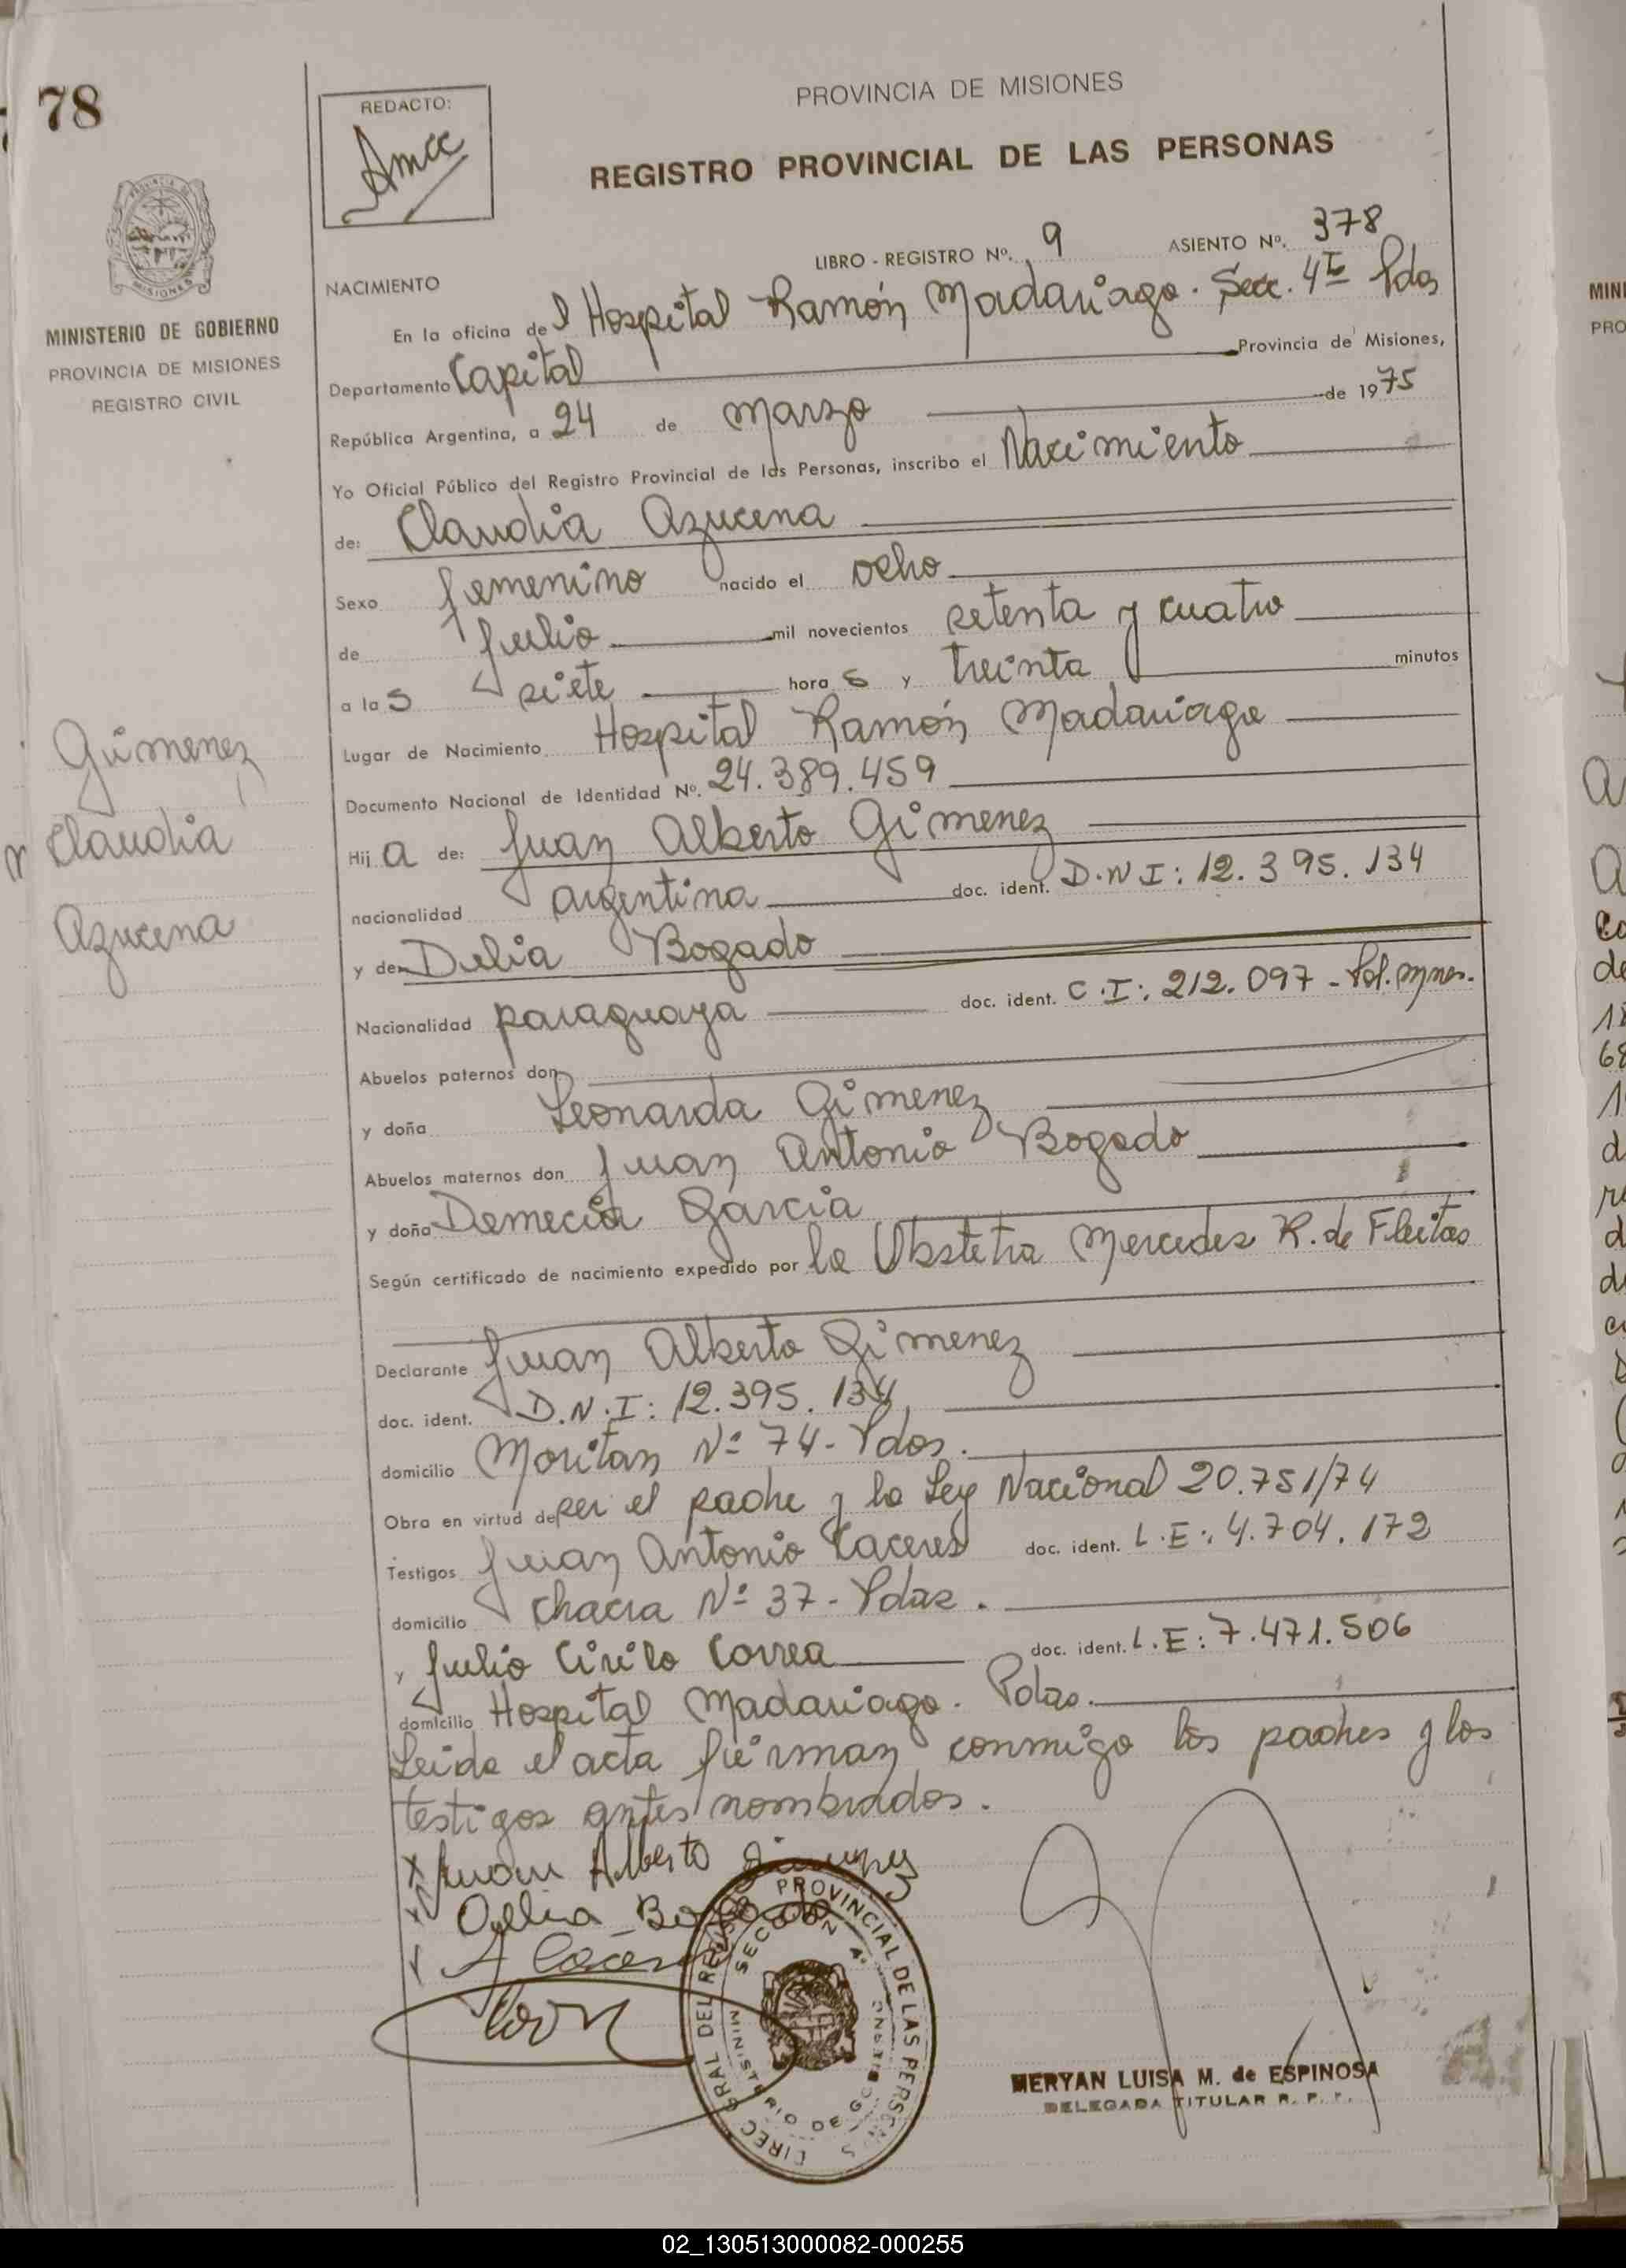 78
REDACTO:
PROVINCIA DE MISIONES
REGISTRO PROVINCIAL DE LAS PERSONAS
LIBRO - REGISTRO Nº. 9 ASIENTO Nº. 378
PROVINCIA DE MISIONES
MINISTERIO DE GOBIERNO
PROVINCIA DE MISIONES
REGISTRO CIVIL
NACIMIENTO
En la oficina del Hospital Ramón Madariaga. Secc. 4ta Pdas
Departamento Capital Provincia de Misiones,
República Argentina, a 24 de marzo de 1975
Yo Oficial Público del Registro Provincial de las Personas, inscribo el Nacimiento
de: Claudia Azucena
Sexo femenino nacido el ocho
de julio mil novecientos setenta y cuatro
a las siete horas y treinta minutos
Lugar de Nacimiento Hospital Ramón Madariaga
Documento Nacional de Identidad Nº. 24.389.459
Gimenez
Claudia
Azucena
Hija de: Juan Alberto Gimenez
nacionalidad argentina doc. ident. D.N.I: 12.395.134
y de Delia Bogado
Nacionalidad paraguaya doc. ident. C.I: 212.097 - Pol. Mnes.
Abuelos paternos don
y doña Leonarda Gimenez
Abuelos maternos don Juan Antonio Bogado
y doña Demecia Garcia
Según certificado de nacimiento expedido por la Obstetra Mercedes R. de Fleitas
Declarante Juan Alberto Gimenez
doc. ident. D.N.I: 12.395.134
domicilio Moritan Nº 74 - Pdas.
Obra en virtud de ser el padre y la Ley Nacional 20.751/74
Testigos Juan Antonio Caceres doc. ident. L.E: 4.704.172
domicilio Chacra Nº 37 - Pdas.
y Julio Cirilo Correa doc. ident. L.E: 7.471.506
domicilio Hospital Madariaga. Pdas.
Leida el acta firman conmigo los padres y los
testigos antes nombrados.
x Juan Alberto Gimenez
x Delia Bogado
A Cáceres
DIREC. GRAL DEL REGISTRO PROVINCIAL DE LAS PERSONAS
SECCION 4ª
MINISTERIO DE GOBIERNO
MERYAN LUISA M. de ESPINOSA
DELEGADA TITULAR R. P. P.
02_130513000082-000255